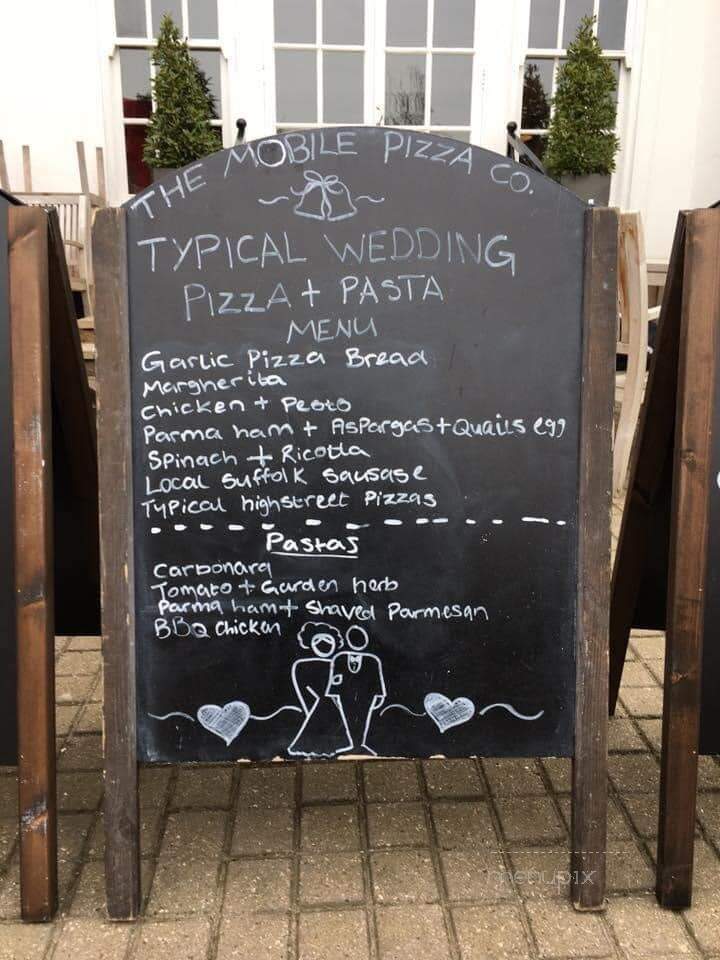 THE MOBILE PIZZA CO.
TYPICAL WEDDING
PIZZA + PASTA
MENU
Garlic Pizza Bread
Margherita
Chicken + Pesto
Parma ham + Aspargas + Quails egg
Spinach + Ricotta
Local Suffolk Sausase
Typical highstreet Pizzas
Pastas
Carbonara
Tomato + Garden herb
Parma ham + Shaved Parmesan
BBQ Chicken
menupix